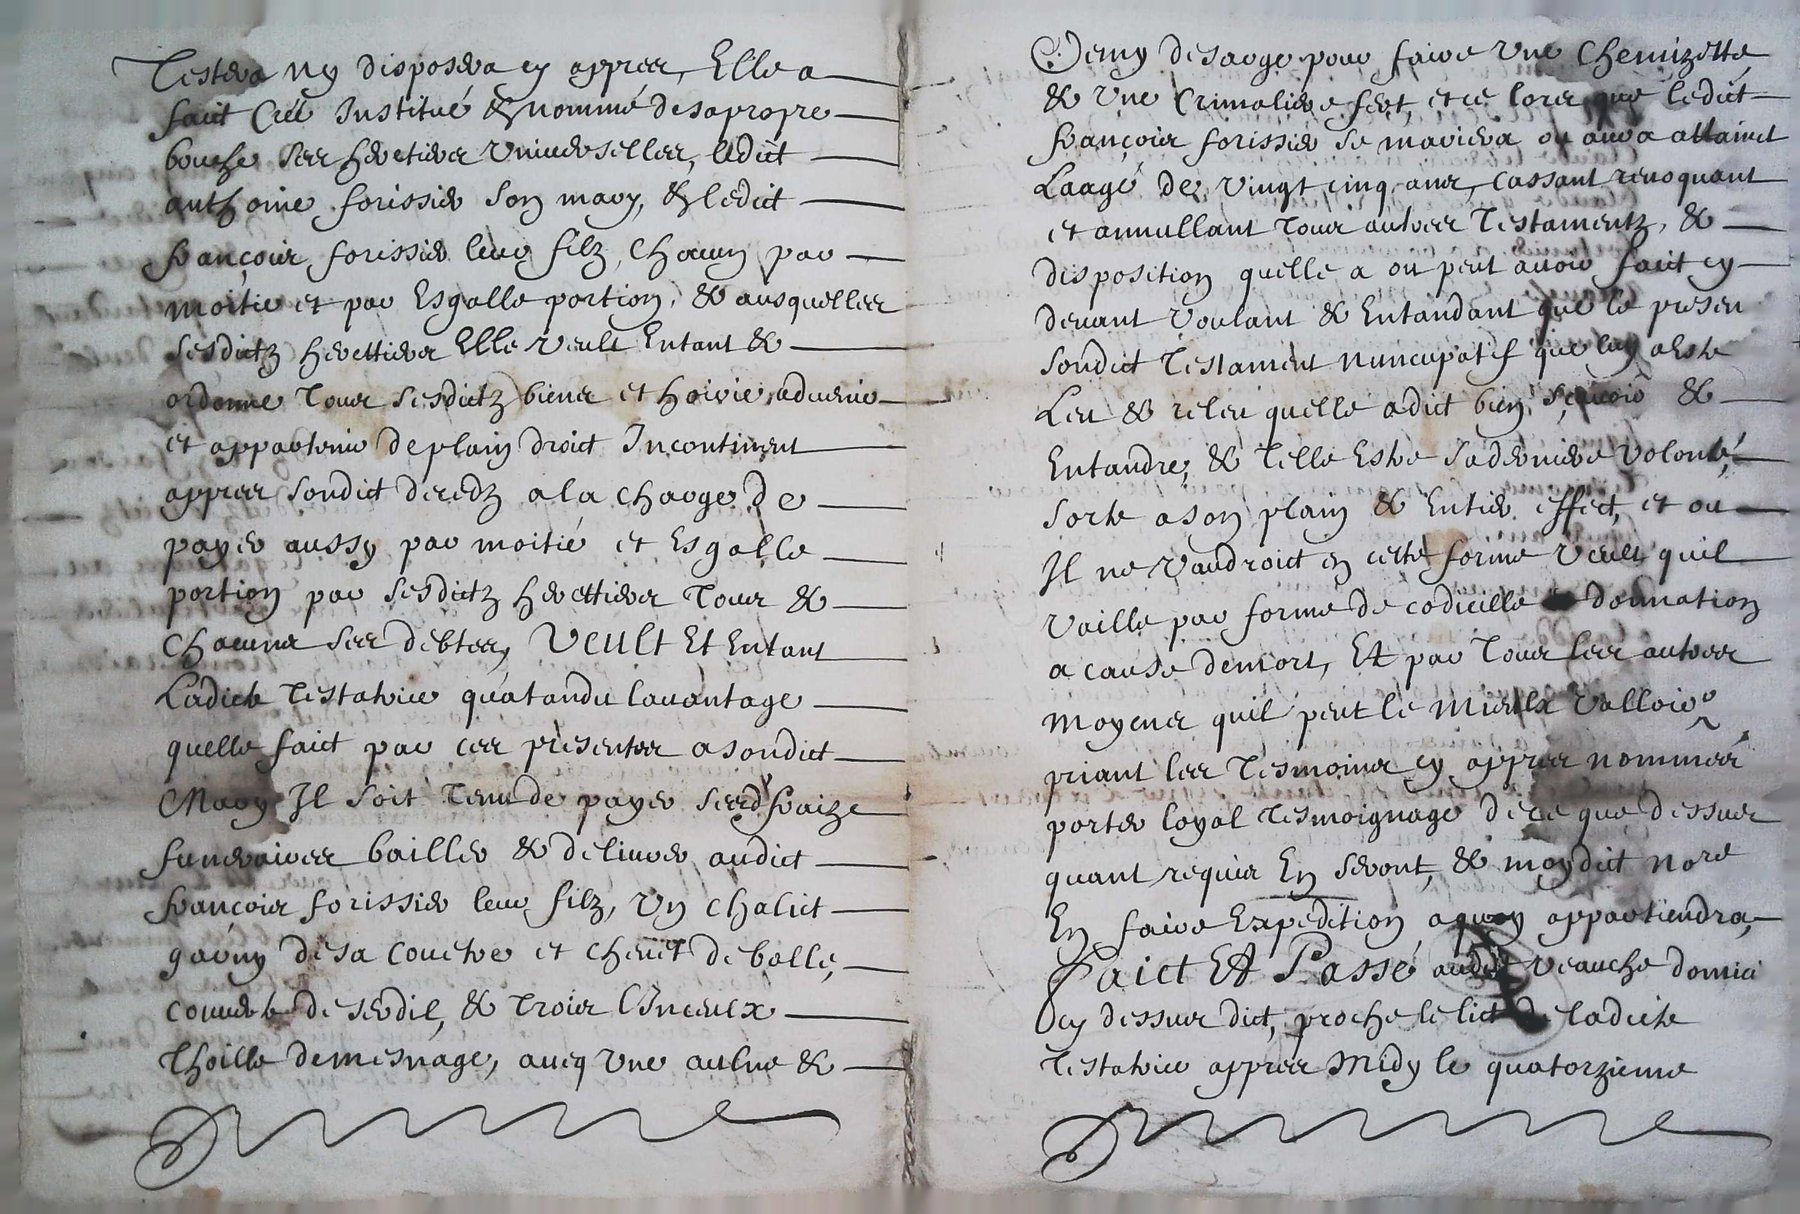 Testera ny disposera cy appres, Elle a
faict Créé Institué & nommé desapropre
bouche ses hérettiers Universelles, ledict
anthoine forissier son mary, & ledict
françois forissier leur filz, chacun par
moitie et par Esgalle portion, & ausquelles
sesdictz herettiers Elle veult Entant &
ordonne Tous sesdictz biens et hoirie, advenir
et appartenir de plain droict Incontinent
appres sondict deredz a la charge de
payer aussy par moitié et Esgalle
portion par sesdictz herettiers Tous &
chacuns ses debtes, Veult Et Entant
Ladicte Testatrice quatandu lavantage
quelle faict par ces presentes a sondict
Mary Il soit Tenu de payer sesd fraize
funeraires bailler & delivrer audict
françois forissier leur filz, Un chalict
garny de sa couetre et chevet de balle,
couverte de serdil, & Trois linceulx
Thoille demesnage, aveq Une aulne &
Demy desarge pour faire Une Chemizette
& Une Crimaliere fert, et ce lors que ledict
françois forissier se mariera ou aura attainct
Laagé de Vingt cinq ans, Cassant revoquant
et annullant Tous aultres Testamentz, &
disposition quelle a ou peut avoir faict cy
devant Voulant & Entandant que le presen
sondict Testament nuncupatif que luy a este
Leu & releu quelle a dict bien sçavoir &
Entandre, & Telle Estre sa derniere Volonté,
Sorte a son plain & Entier effect, et ou
Il ne Vaudroict en cette forme Veult quil
Vaille par forme de codicille donnation
a cause demort, Et par Tous les autres
Moyens quil peut le Mieulx Valloir
priant les Tesmoins cy appres nommés
porter loyal Tesmoignage de ce que dessus
quant requis En seront, & moydict Nore
En faire Expedition, a quy appartiendra,
Faict Et Passé audict Veauche domici
cy dessus dict, proche le lict de ladicte
Testatrice appres Midy le quatorzieme